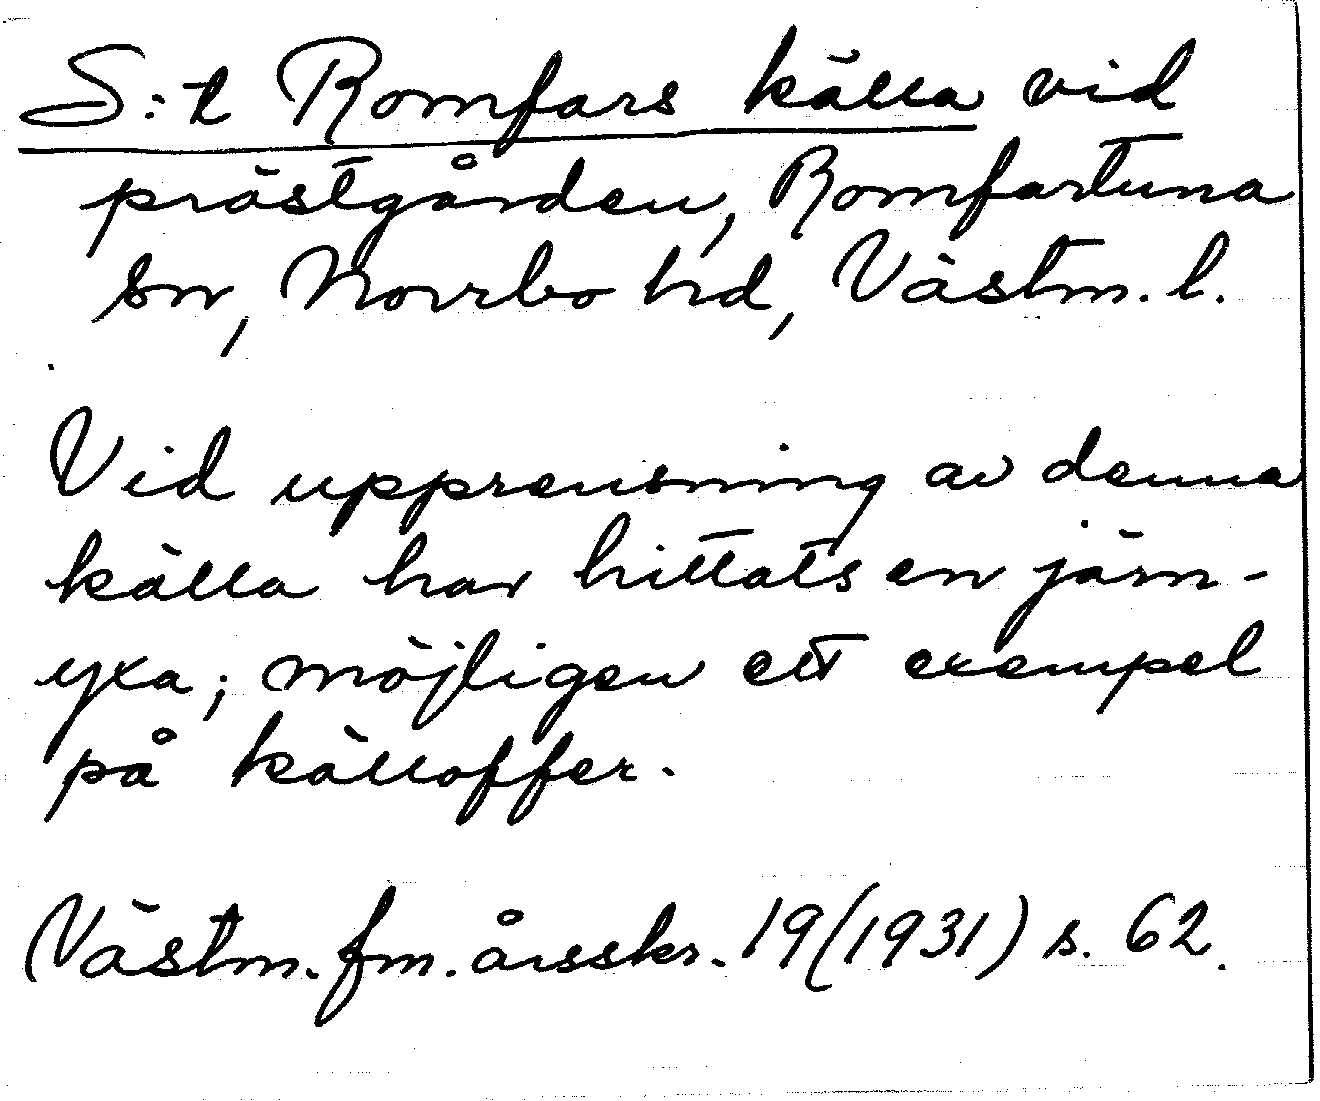 S:t Romfars källa vid
prästgården, Romfartuna
sn, Norrbo hd, Västm. l.
Vid upprensning av denna
källa har hittats en järn-
yxa; möjligen ett exempel
på källoffer.
Västm. fm. årsskr. 19 (1931) s. 62.